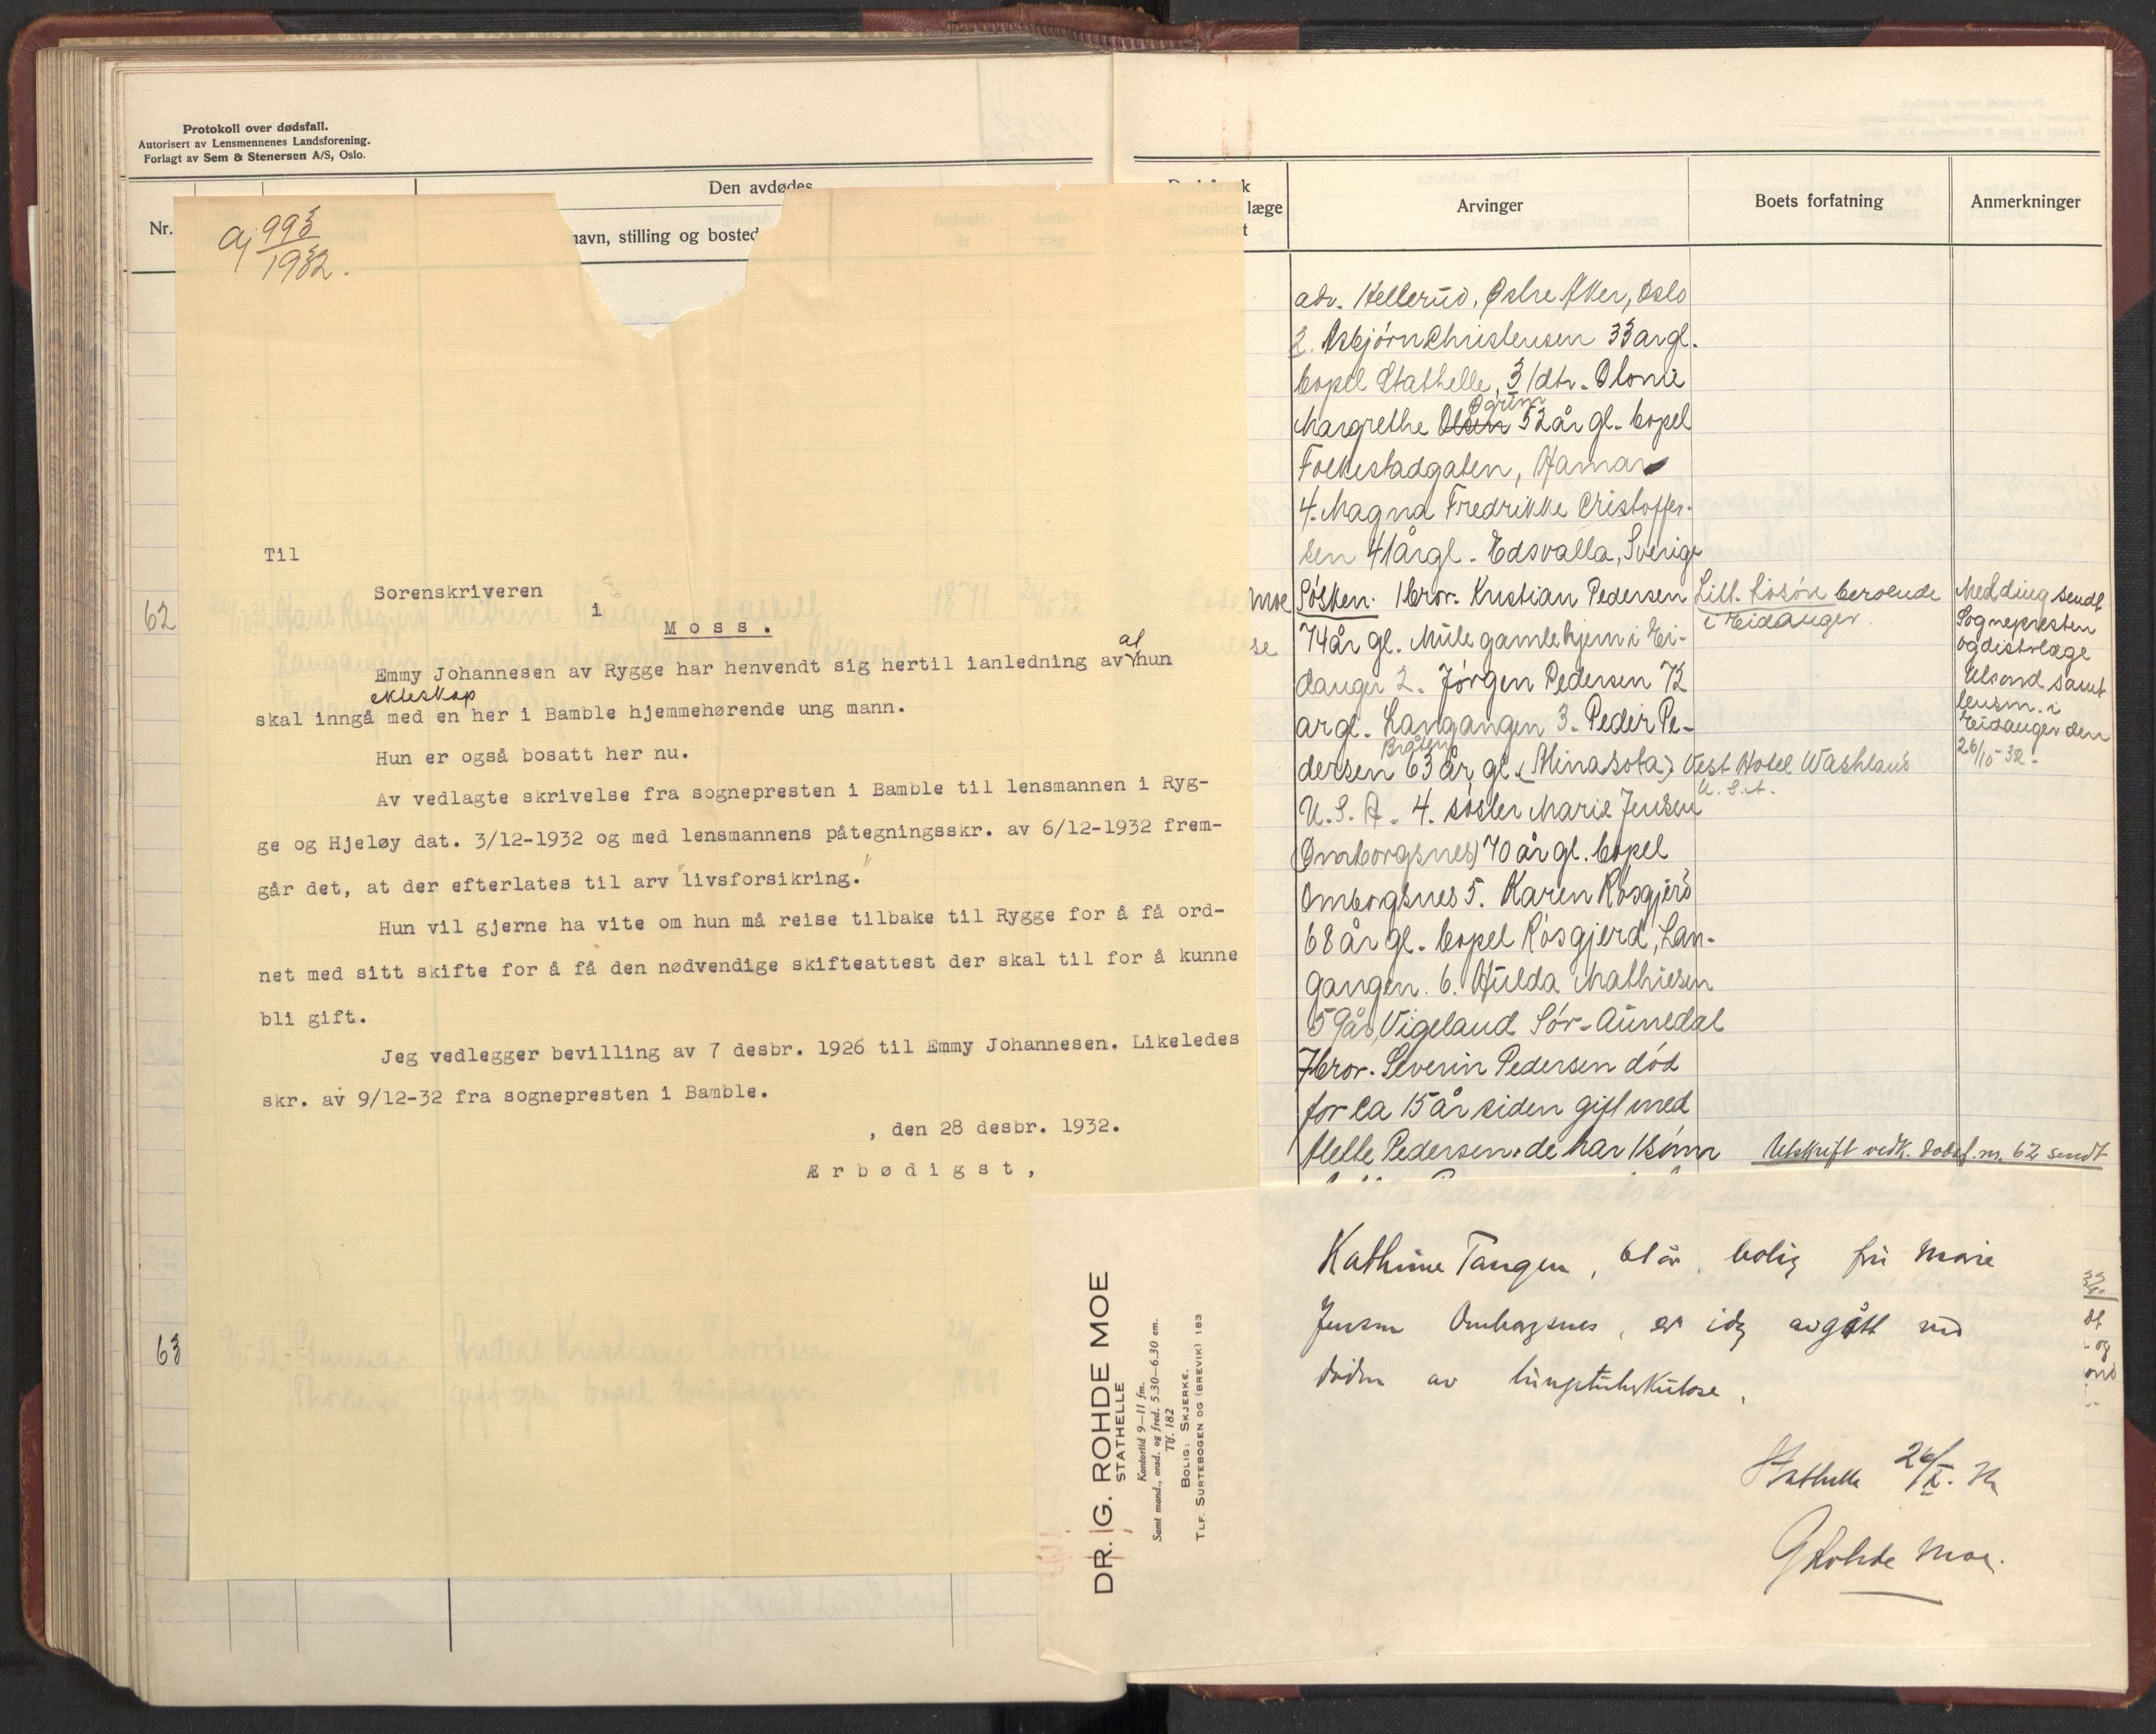 Protokoll over dødsfall.
Autorisert av Lensmennenes Landsforening.
Forlagt av Sem & Stenersen A/S, Oslo.
Den avdødes
Nr.
navn, stilling og bosted
62
63
aj 993/1932.
Til
Sorenskriveren
i
Moss.
at
Emmy Johannesen av Rygge har henvendt sig hertil ianledning av hun
ekteskap
skal inngå med en her i Bamble hjemmehørende ung mann.
Hun er også bosatt her nu.
Av vedlagte skrivelse fra sognepresten i Bamble til lensmannen i Ryg-
ge og Hjeløy dat. 3/12-1932 og med lensmannens påtegningsskr. av 6/12-1932 frem-
går det, at der efterlates til arv "livsforsikring."
Hun vil gjerne ha vite om hun må reise tilbake til Rygge for å få ord-
net med sitt skifte for å få den nødvendige skifteattest der skal til for å kunne
bli gift.
Jeg vedlegger bevilling av 7 desbr. 1926 til Emmy Johannesen. Likeledes
skr. av 9/12-32 fra sognepresten i Bamble.
, den 28 desbr. 1932.
Ærbødigst,
læge
Arvinger
Boets forfatning
Anmerkninger
adr. Hellerud, Østre Aker, Oslo
2. Asbjørn Christensen 33 år gl.
bopel Stathelle, 3/dtr. Olonie
Margrethe Olsen 52 år gl. bopel
Folkestadgaten, Hamar
4. Magna Fredrikke Cristoffer-
sen 41 år gl. Edsvalla, Sverige
moe
Søsken. 1 bror. Kristian Pedersen
74 år gl. Mule gamlehjem i Ei-
danger 2. Jörgen Pedersen 72
år gl. Langangen 3. Peder Pe-
Bråten
dersen 63 år gl. (Minasota) Vest Hotel Washlaus
U.S.A.
U. S. A. 4. søster Marie Jensen
(Omborgsnes) 70 år gl. bopel
Omborgsnes 5. Karen Røsgjerd
68 år gl. bopel Røsgjerd, Lan-
gangen. 6. Hulda Mathiesen
59 år, Vigeland Sör-Aunedal
7 bror. Severin Pedersen död
for ca 15 år siden gift med
Helle Pedersen. de har 1 sönn
Litt løsøre beroende
i Eidanger.
Melding sendt
Sognepresten
og distrlæge
Ulsond samt
lensm. i
Eidanger den
26/10-32.
Utskrift vedk. dødsf. nr. 62 sendt
DR. G. ROHDE MOE
STATHELLE
Kontortid 9—11 fm.
Samt mand., onsd. og fred. 5.30—6.30 em.
Tlf. 182
BOLIG: SKJERKE.
TLF. SURTEBOGEN OG (BREVIK) 183
Kathrine Tangen, 61 år, bolig fru Marie
Jensen Ombargsnes, er idg avgått ved
døden av lungetuberkulose.
Stathelle 26/X. 32
G Rohde Moe.